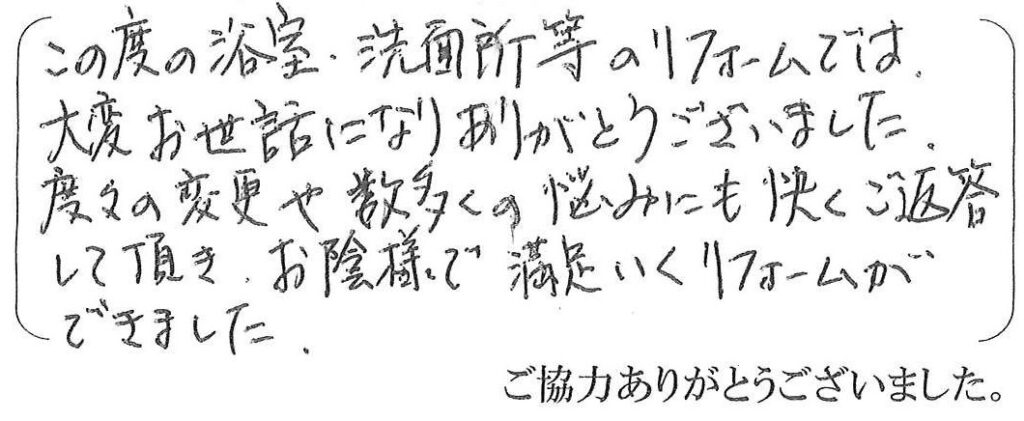 この度の浴室・洗面所等のリフォームでは、
大変お世話になりありがとうございました。
度々の変更や数多くの悩みにも快くご返答
して頂き、お陰様で満足いくリフォームが
できました。
ご協力ありがとうございました。